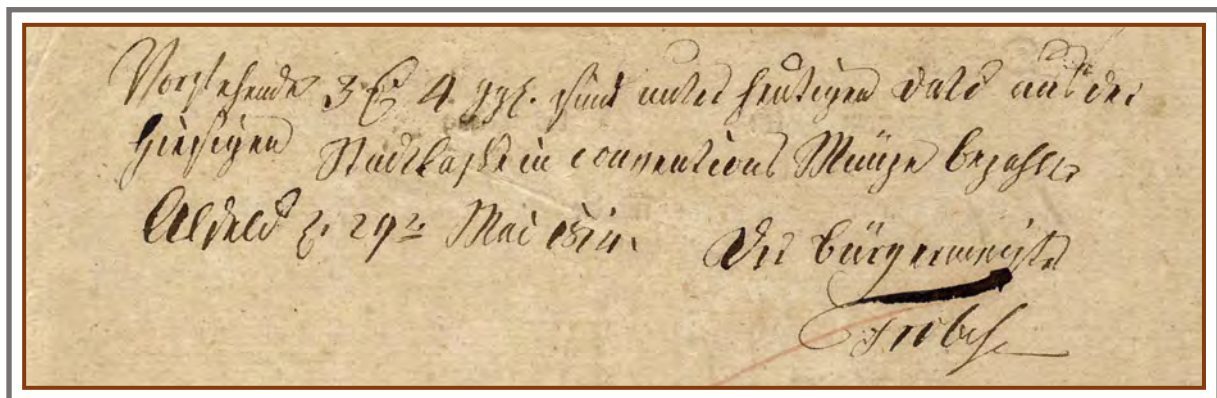 Vorstehende 3 rh 4 ggl. sind unter heutigen Dato aus der
hiesigen Stadtkasse in conventions Münze bezahlt.
Alfeld d. 29t Mai 1814.
Der Bürgermeister